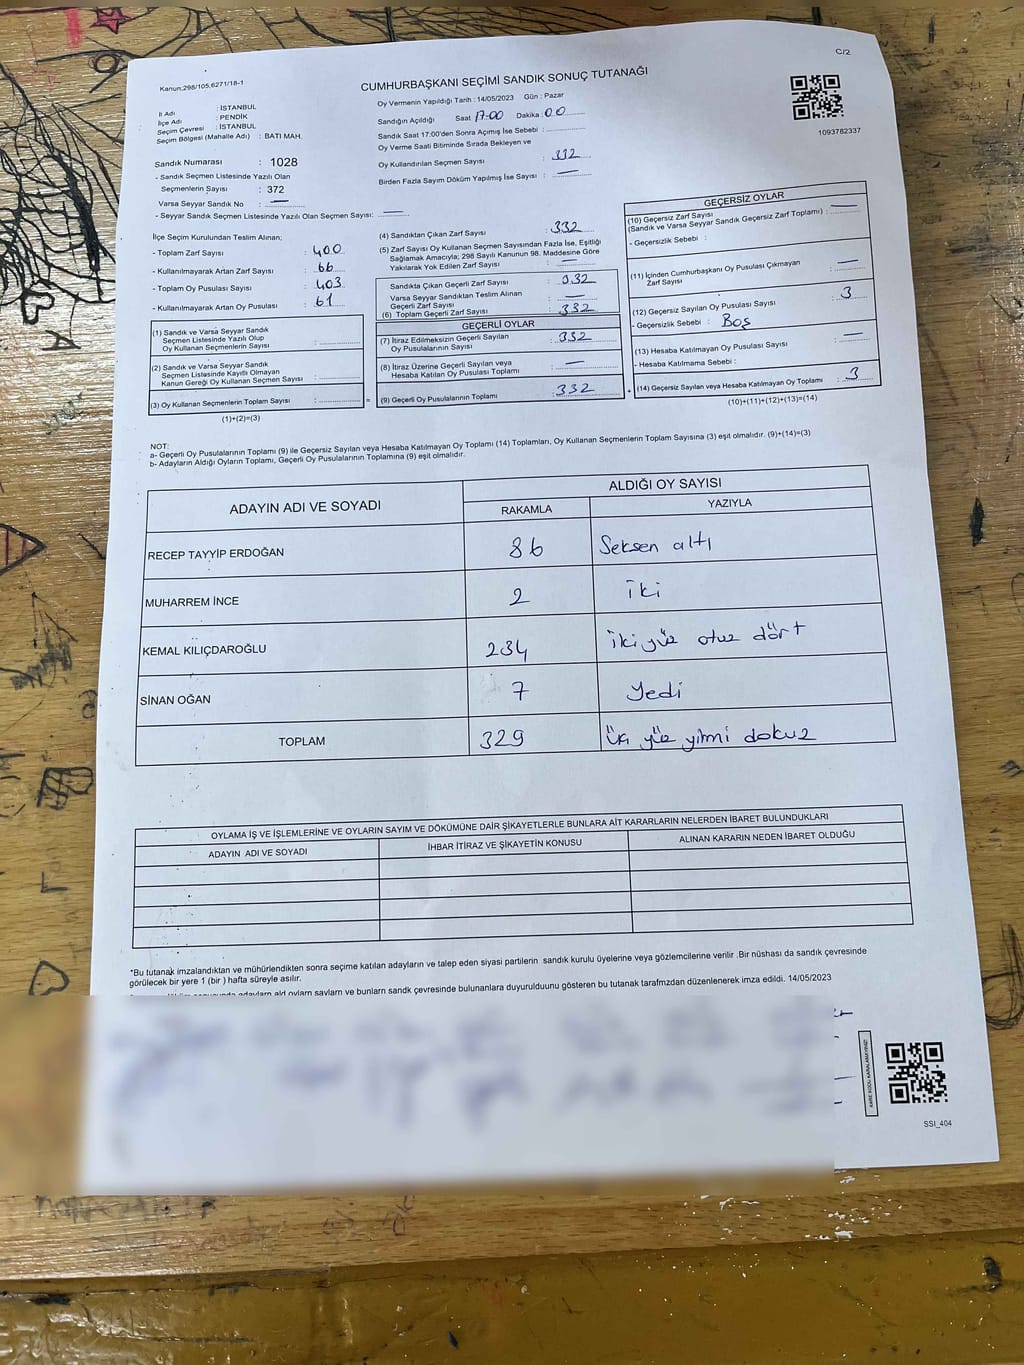 C/2
Kanun;298/105;6271/18-1
CUMHURBAŞKANI SEÇİMİ SANDIK SONUÇ TUTANAĞI
İl Adı : İSTANBUL
İlçe Adı : PENDİK
Seçim Çevresi : İSTANBUL
Seçim Bölgesi (Mahalle Adı) : BATI MAH.
Sandık Numarası : 1028
- Sandık Seçmen Listesinde Yazılı Olan
Seçmenlerin Sayısı : 372
Varsa Seyyar Sandık No : —
- Seyyar Sandık Seçmen Listesinde Yazılı Olan Seçmen Sayısı: —
Oy Vermenin Yapıldığı Tarih : 14/05/2023 Gün : Pazar
Sandığın Açıldığı Saat 17:00 Dakika : 00
Sandık Saat 17:00'den Sonra Açımış İse Sebebi :
Oy Verme Saati Bitiminde Sırada Bekleyen ve
Oy Kullandırılan Seçmen Sayısı : 332
Birden Fazla Sayım Döküm Yapılmış İse Sayısı : —
1093782337
İlçe Seçim Kurulundan Teslim Alınan;
- Toplam Zarf Sayısı : 400
- Kullanılmayarak Artan Zarf Sayısı : 66
- Toplam Oy Pusulası Sayısı : 403
- Kullanılmayarak Artan Oy Pusulası : 61
(1) Sandık ve Varsa Seyyar Sandık
Seçmen Listesinde Yazılı Olup
Oy Kullanan Seçmenlerin Sayısı :
(2) Sandık ve Varsa Seyyar Sandık
Seçmen Listesinde Kayıtlı Olmayan
Kanun Gereği Oy Kullanan Seçmen Sayısı :
(3) Oy Kullanan Seçmenlerin Toplam Sayısı :
(1)+(2)=(3)
=
(4) Sandıktan Çıkan Zarf Sayısı : 332
(5) Zarf Sayısı Oy Kullanan Seçmen Sayısından Fazla İse, Eşitliği
Sağlamak Amacıyla; 298 Sayılı Kanunun 98. Maddesine Göre
Yakılarak Yok Edilen Zarf Sayısı : —
Sandıkta Çıkan Geçerli Zarf Sayısı : 332
Varsa Seyyar Sandıktan Teslim Alınan
Geçerli Zarf Sayısı : —
(6) Toplam Geçerli Zarf Sayısı : 332
GEÇERLİ OYLAR
(7) İtiraz Edilmeksizin Geçerli Sayılan
Oy Pusulalarının Sayısı : 332
(8) İtiraz Üzerine Geçerli Sayılan veya
Hesaba Katılan Oy Pusulası Toplamı : —
(9) Geçerli Oy Pusulalarının Toplamı : 332
+
GEÇERSİZ OYLAR
(10) Geçersiz Zarf Sayısı
(Sandık ve Varsa Seyyar Sandık Geçersiz Zarf Toplamı) : —
- Geçersizlik Sebebi :
(11) İçinden Cumhurbaşkanı Oy Pusulası Çıkmayan
Zarf Sayısı : —
(12) Geçersiz Sayılan Oy Pusulası Sayısı : 3
- Geçersizlik Sebebi : Boş
(13) Hesaba Katılmayan Oy Pusulası Sayısı : —
- Hesaba Katılmama Sebebi :
(14) Geçersiz Sayılan veya Hesaba Katılmayan Oy Toplamı : 3
(10)+(11)+(12)+(13)=(14)
NOT:
a- Geçerli Oy Pusulalarının Toplamı (9) ile Geçersiz Sayılan veya Hesaba Katılmayan Oy Toplamı (14) Toplamları, Oy Kullanan Seçmenlerin Toplam Sayısına (3) eşit olmalıdır. (9)+(14)=(3)
b- Adayların Aldığı Oyların Toplamı, Geçerli Oy Pusulalarının Toplamına (9) eşit olmalıdır.
ADAYIN ADI VE SOYADI ALDIĞI OY SAYISI
RAKAMLA YAZIYLA
RECEP TAYYİP ERDOĞAN 86 Seksen altı
MUHARREM İNCE 2 iki
KEMAL KILIÇDAROĞLU 234 iki yüz otuz dört
SİNAN OĞAN 7 Yedi
TOPLAM 329 üç yüz yirmi dokuz
OYLAMA İŞ VE İŞLEMLERİNE VE OYLARIN SAYIM VE DÖKÜMÜNE DAİR ŞİKAYETLERLE BUNLARA AİT KARARLARIN NELERDEN İBARET BULUNDUKLARI
ADAYIN ADI VE SOYADI İHBAR İTİRAZ VE ŞİKAYETİN KONUSU ALINAN KARARIN NEDEN İBARET OLDUĞU
*Bu tutanak imzalandıktan ve mühürlendikten sonra seçime katılan adayların ve talep eden siyasi partilerin sandık kurulu üyelerine veya gözlemcilerine verilir .Bir nüshası da sandık çevresinde
görülecek bir yere 1 (bir ) hafta süreyle asılır.
adayların ald oyların sayların ve bunların sandk çevresinde bulunanlara duyurulduunu gösteren bu tutanak tarafmzdan düzenlenerek imza edildi. 14/05/2023
KARE KODU KARALAMAYINIZ!
SSI_404